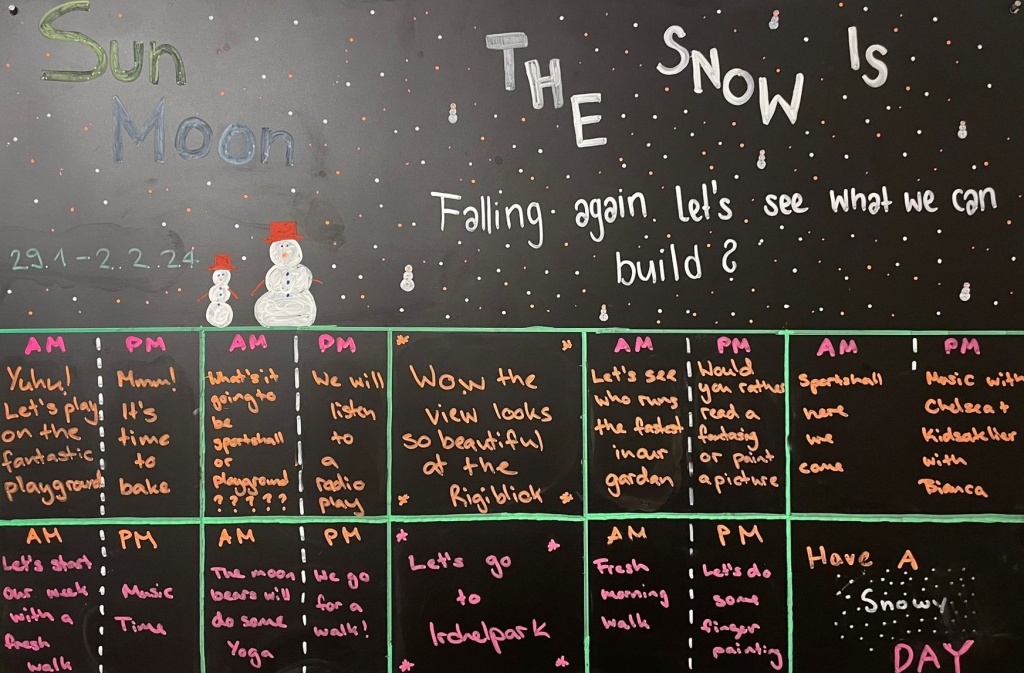 Sun
Moon
THE SNOW IS
Falling again. Let's see what we can
build?
29.1-2.2.24
AM
Yuhu!
Let's play
on the
fantastic
playground
PM
Mmm!
It's
time
to
bake
AM
What's it
going to
be
sportshall
or
playground
?????
PM
We will
listen
to
a
radio
play
Wow the
view looks
so beautiful
at the
Rigiblick
AM
Let's see
who runs
the fastest
in our
garden
PM
Would
you rather
read a
fantasiy
or paint
a picture
AM
Sportshall
here
we
come
PM
Music with
Chelsea +
Kidsatelier
with
Bianca
AM
Let's start
our week
with a
fresh
walk
PM
Music
Time
AM
The moon
bears will
do some
Yoga
PM
We go
for a
walk!
Let's go
to
Irchelpark
AM
Fresh
morning
walk
PM
Let's do
some
finger
painting
Have A
Snowy
DAY